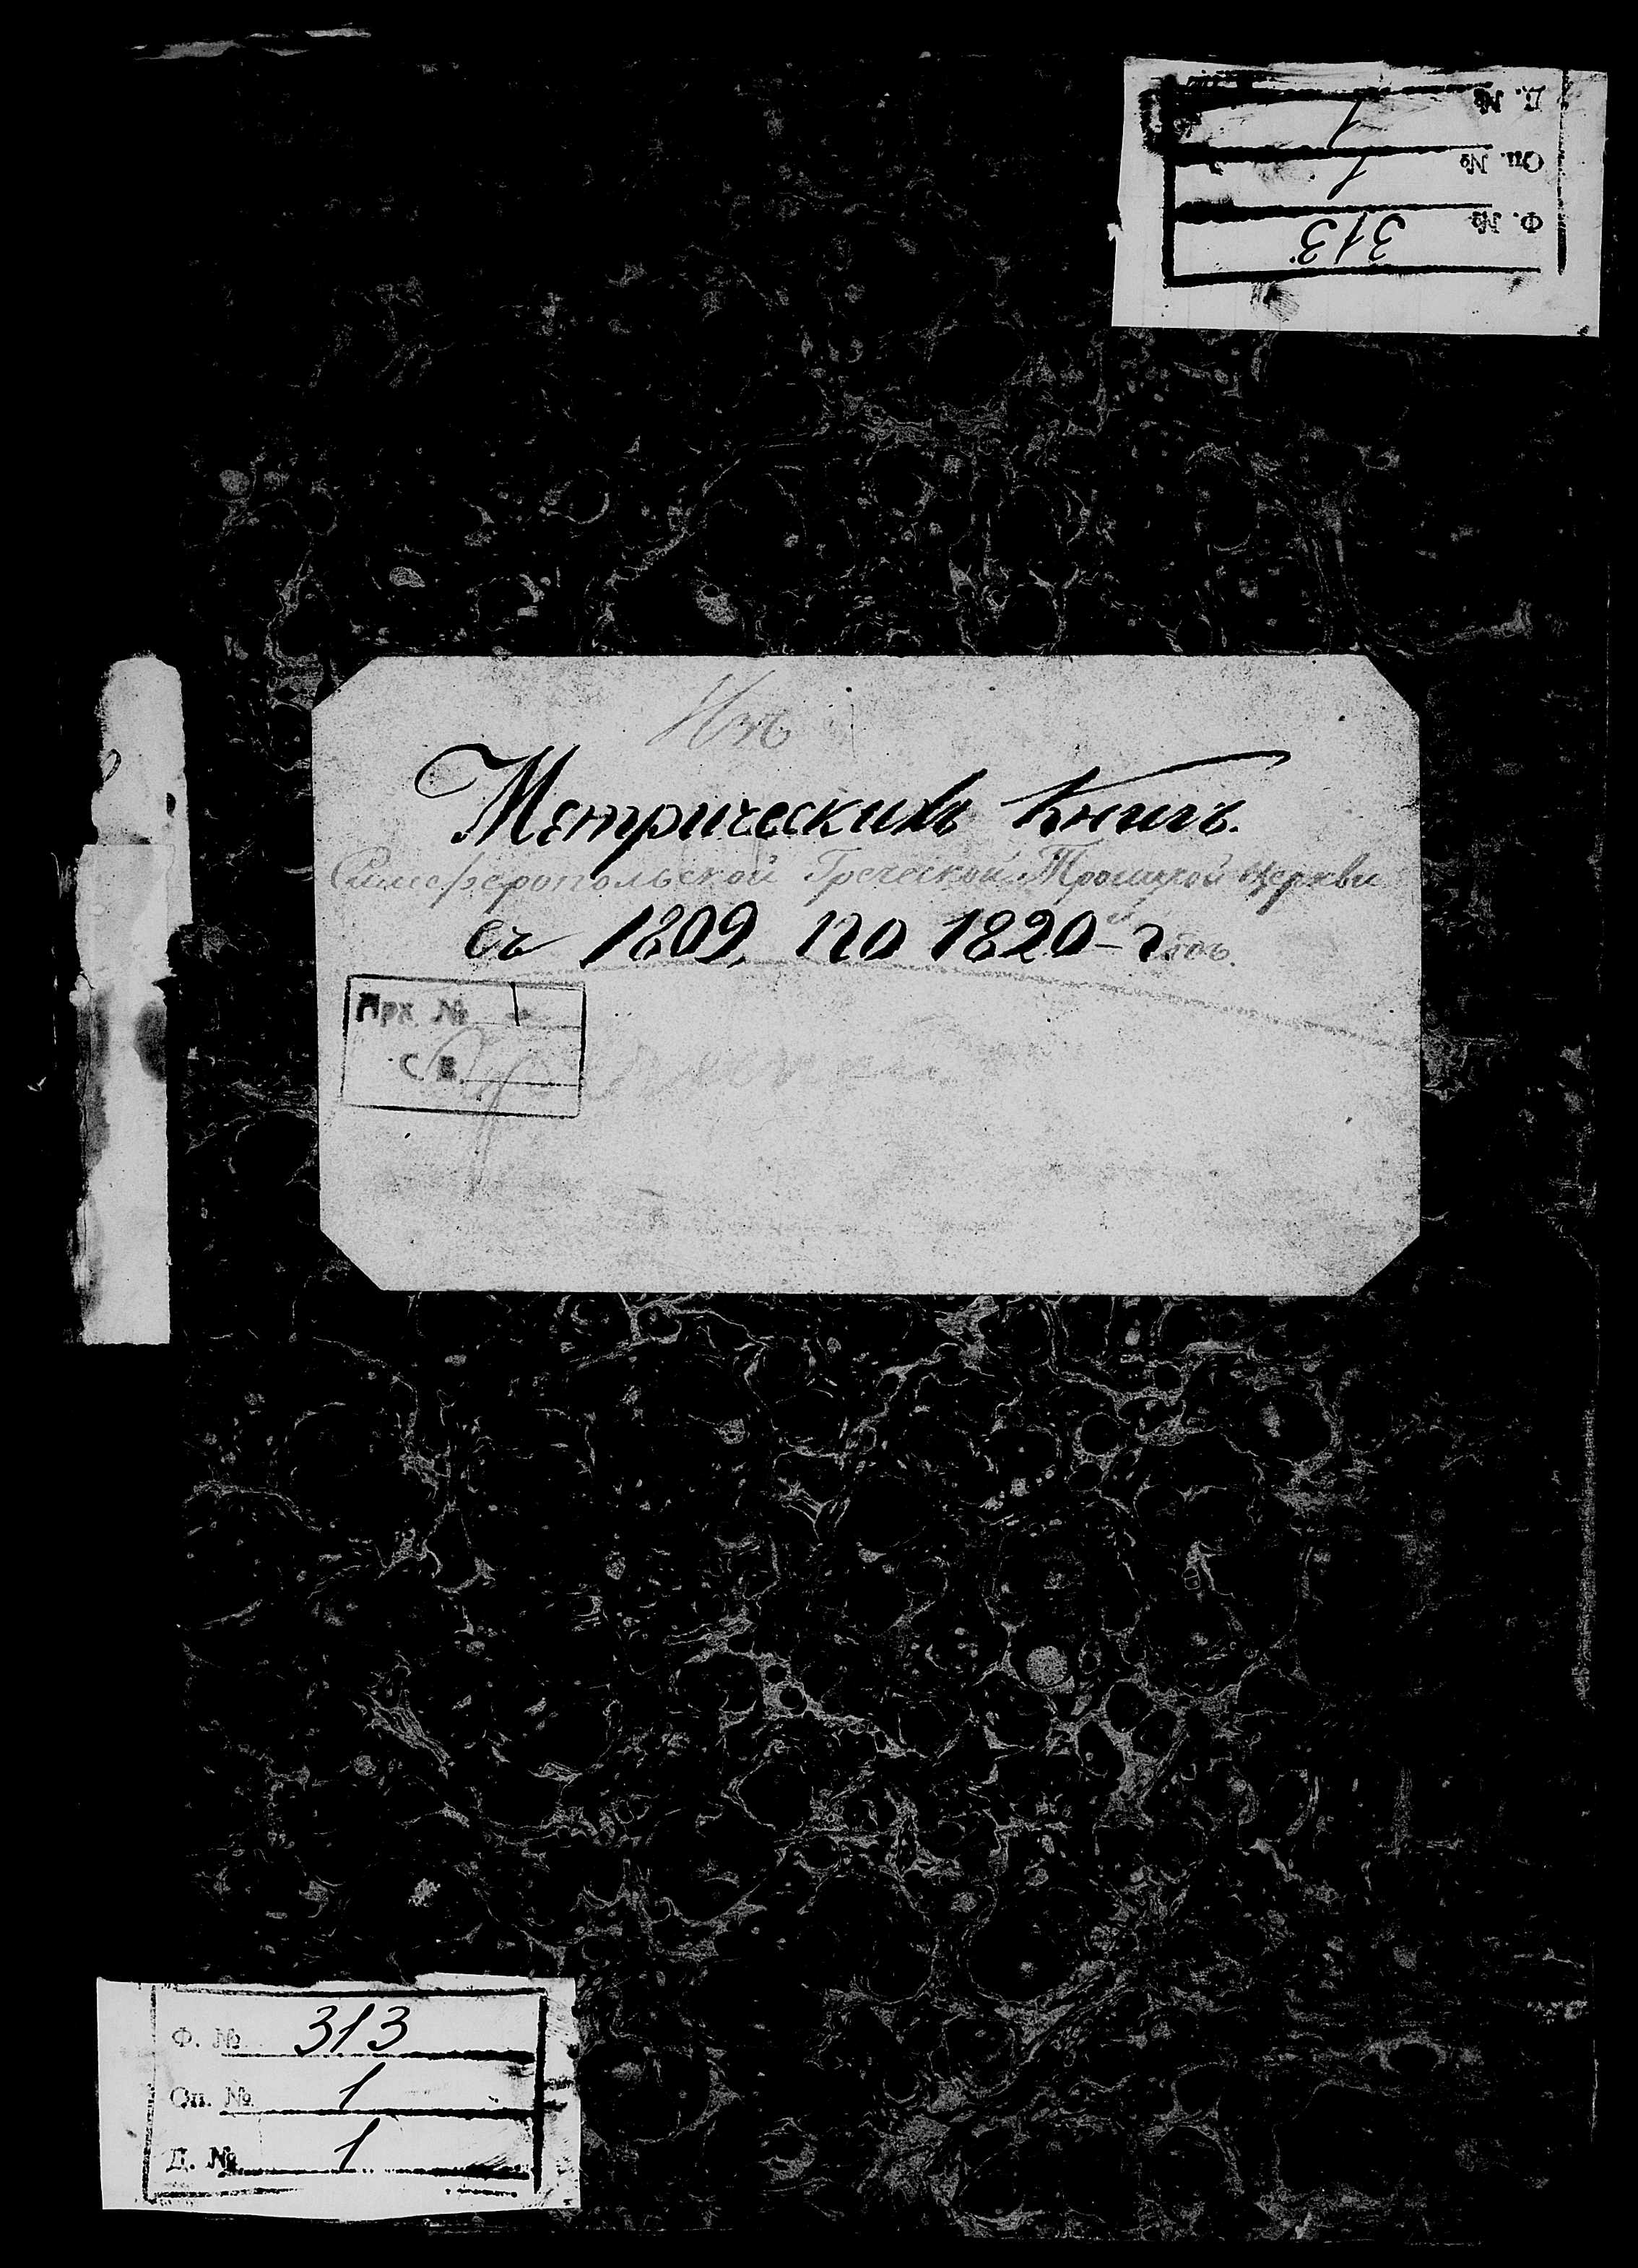 Д. № 1
Оп. № 1
Ф. № 313
Метрическихъ Книгъ.
Симферопольской Греческой Троицкой Церкви
съ 1809, по 1820-г годъ.
Арх. № 1
Св.
Ф. № 313
Оп. № 1
Д. № 1